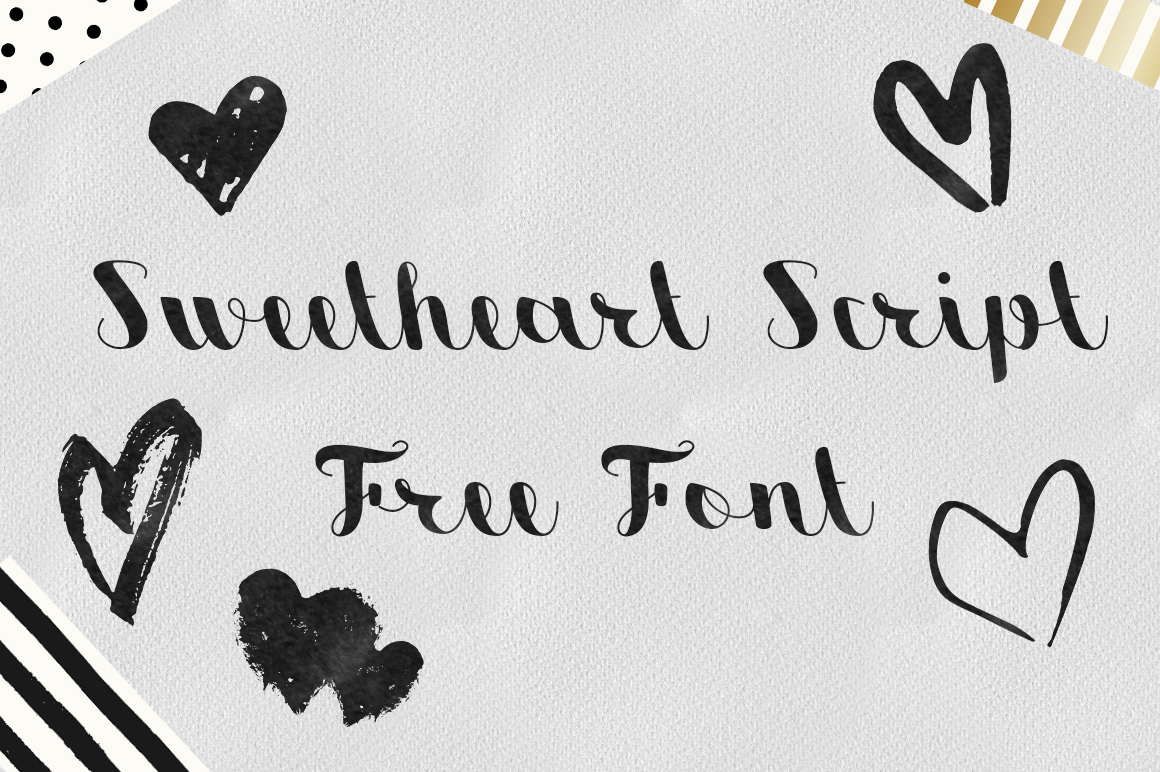 Sweetheart Script
Free Font